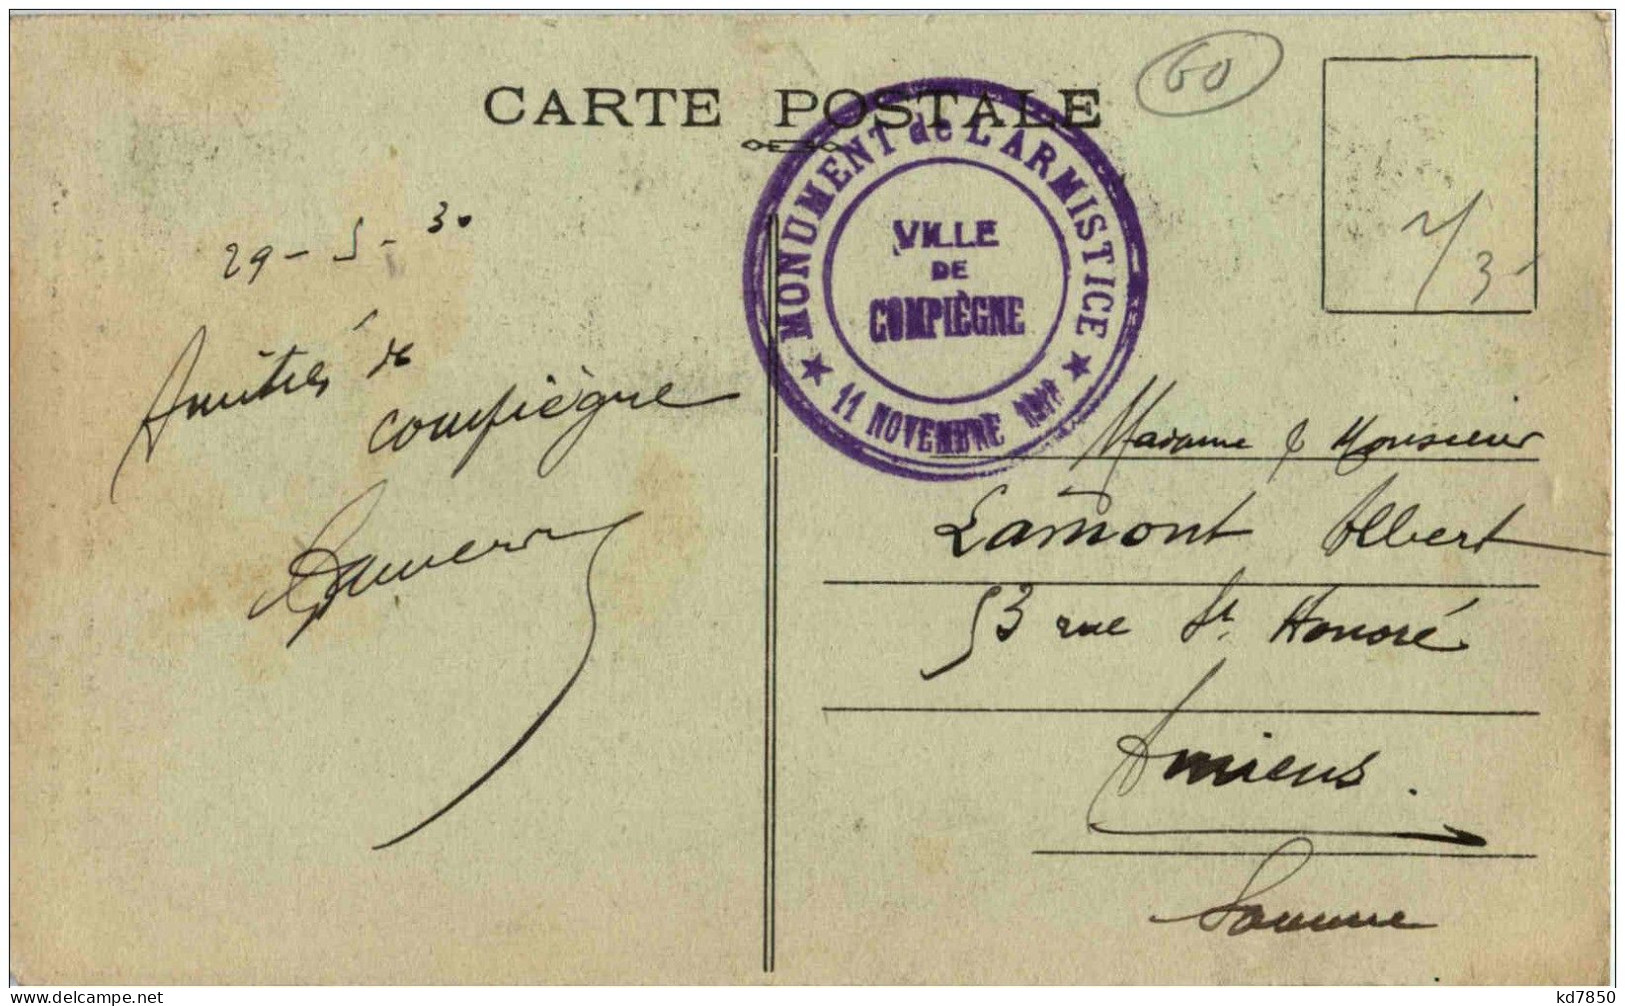 CARTE POSTALE
60
MONUMENT de L'ARMISTICE
VILLE
DE
COMPIÈGNE
★ 11 NOVEMBRE ★
29-5-30
Amitiés de
compiègne
Madame & Monsieur
Lamont Albert
53 rue St Honoré
Amiens.
Somme
delcampe.net
kd7850